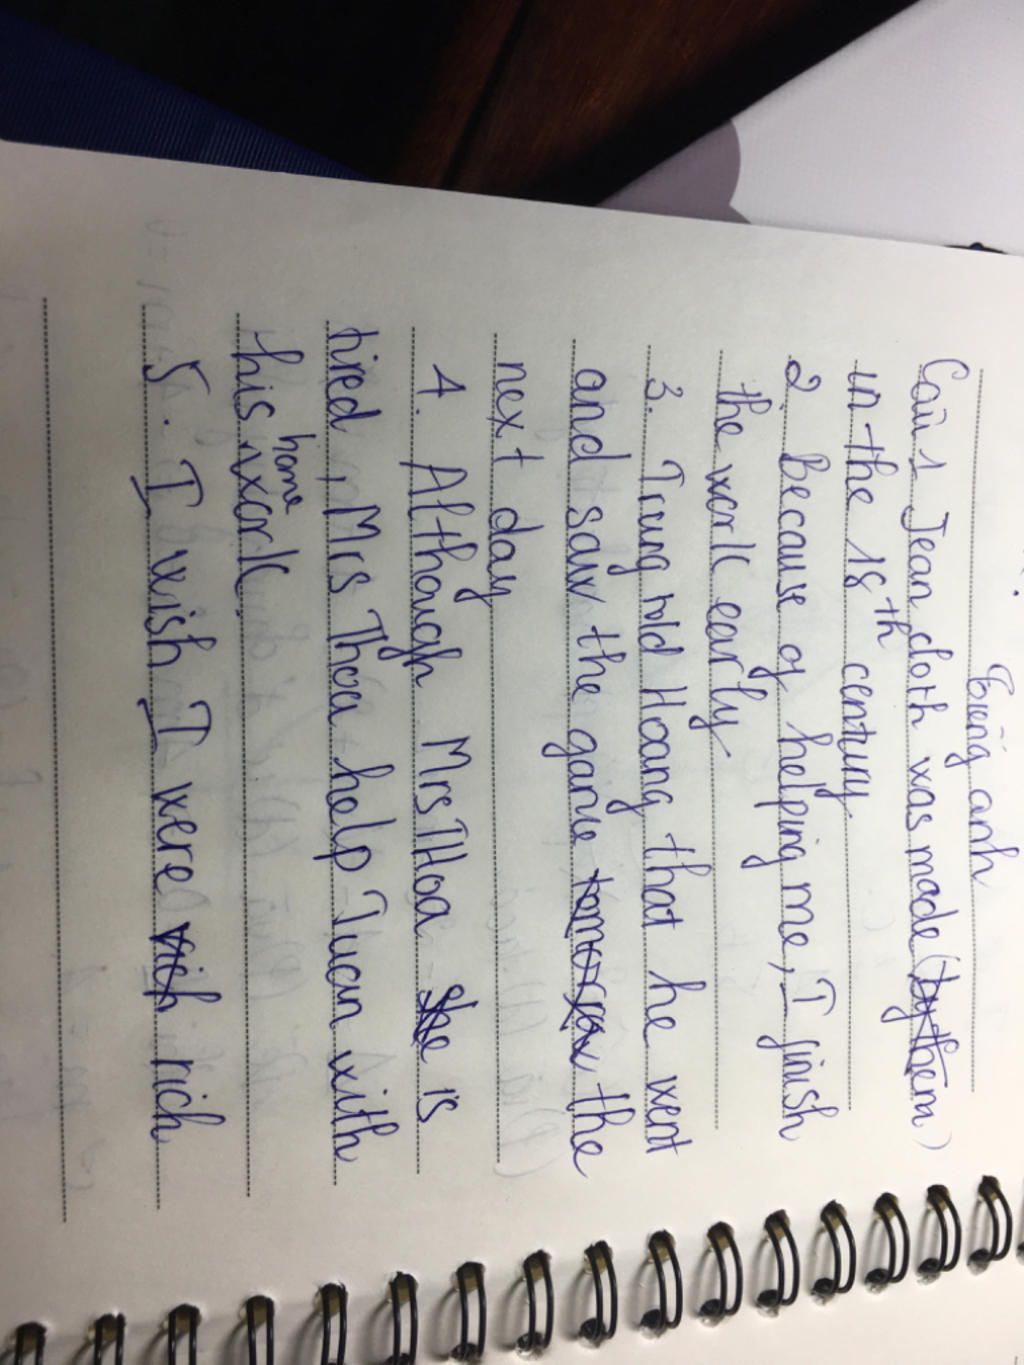 Tiếng anh
Câu 1 Jean cloth was made (by them)
in the 18th century
2. because of helping me, I finish
the work early
3. Trung told Hoang that he went
and saw the game the
next day
4. Although Mrs THoa is
tired, Mrs Thoa help Tuan with
his home work.
5. I wish I were rich